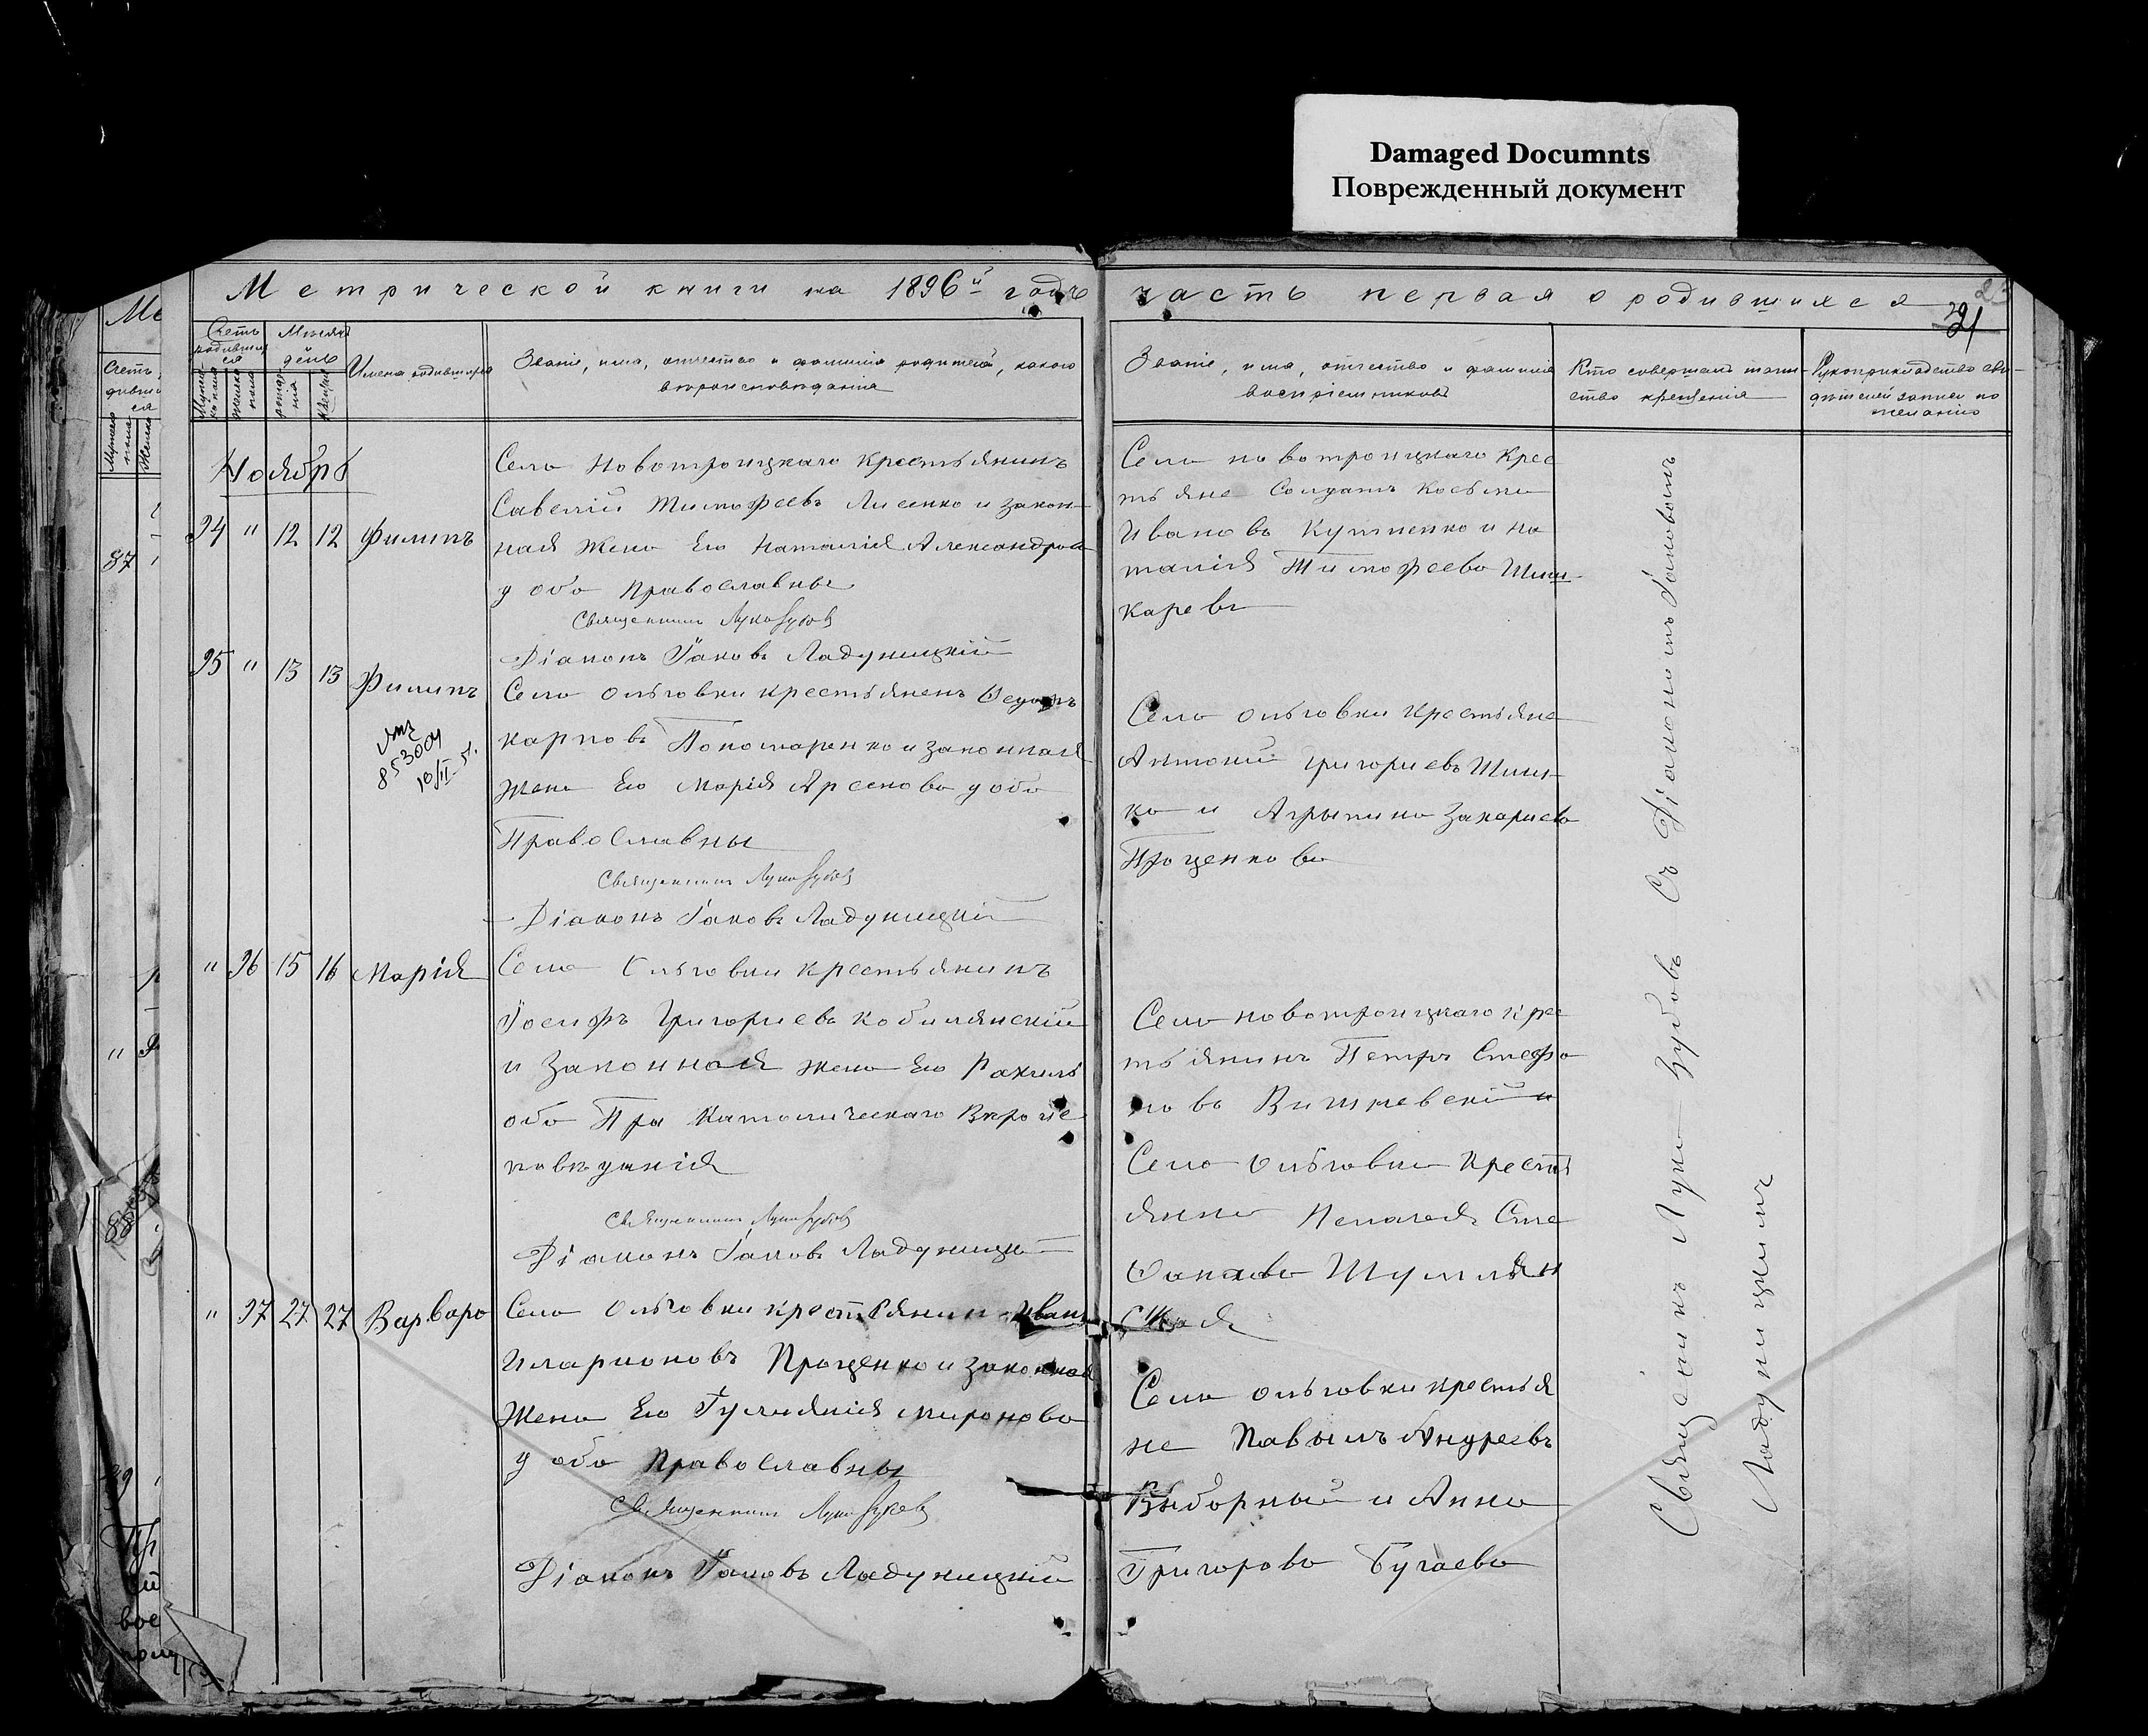 Damaged Documnts
Поврежденный документ
Метрической книги на 1896й годъ
часть первая о родившихся
21
Счетъ родившихся
Мѣсяцъ день
Мужеска пола
Женска пола
рожденія
крещенія
Имена родившихся
Званіе, имя, отчество и фамилія родителей, какого
вѣроисповѣданія
Званіе, имя, отчество и фамилія
воспріемниковъ
Кто совершалъ таин-
ство крещенія
Рукоприкладство сви-
дѣтелей записи по
желанію
Ноябрь
94 " 12 12 Филипъ
Села Новотроицкаго Крестьянинъ
Савелій Тимофеевъ Лисенко и закон
ная Жена Его Наталія Александрова
у оба Православны
Священникъ Лука Зубовъ
Діаконъ Іаковъ Ладуницкій
Села новотроицкаго Крес
тьяне Солдатъ Косьма
Ивановъ Кутненко и на
талія Тимофеева Шиш-
карева
95 " 13 13 Филипъ
853004
10/II
Села Ольговки крестьяненъ Ѳедоръ
карповъ Пономаренко и законная
Жена Его Марія Арсенова у оба
Православны
Священникъ Лука Зубовъ
Діаконъ Іаковъ Ладуницкій
Села Ольговки Крестьяне
Антоній Григориевъ Шиш-
ка и Агрыпина Захариева
Проценкова
" 96 15 16 Марія
Села Ольговки крестьянинъ
Іосифъ Григориевъ Кобилянскій
и Законная жена Его Рахиль
оба При Католическаго Вѣроис
повѣданія
Священникъ Лука Зубовъ
Діаконъ Іаковъ Ладуницкій
Села новотроицкаго крес
тьянинъ Петръ Стефа
новъ Вишневскій и
Села Ольговки Кресть
янка Пелагея Сте
Ѳанова Шумлян
ская
" 97 27 27 Варвара
Села Ольговки крестьянин Иванъ
Иларионовъ Проценко и законная
Жена Его Гулиянія миронова
у оба Православны
Священникъ Лука Зубовъ
Діаконъ Іаковъ Ладуницкій
Села ольговки крестья
не Павылъ Андреевъ
Выборный и Анна
Григорова Бугаева
Священникъ Лука Зубовъ Съ Діакономъ Іаковомъ
Ладуницкимъ
87
88
89